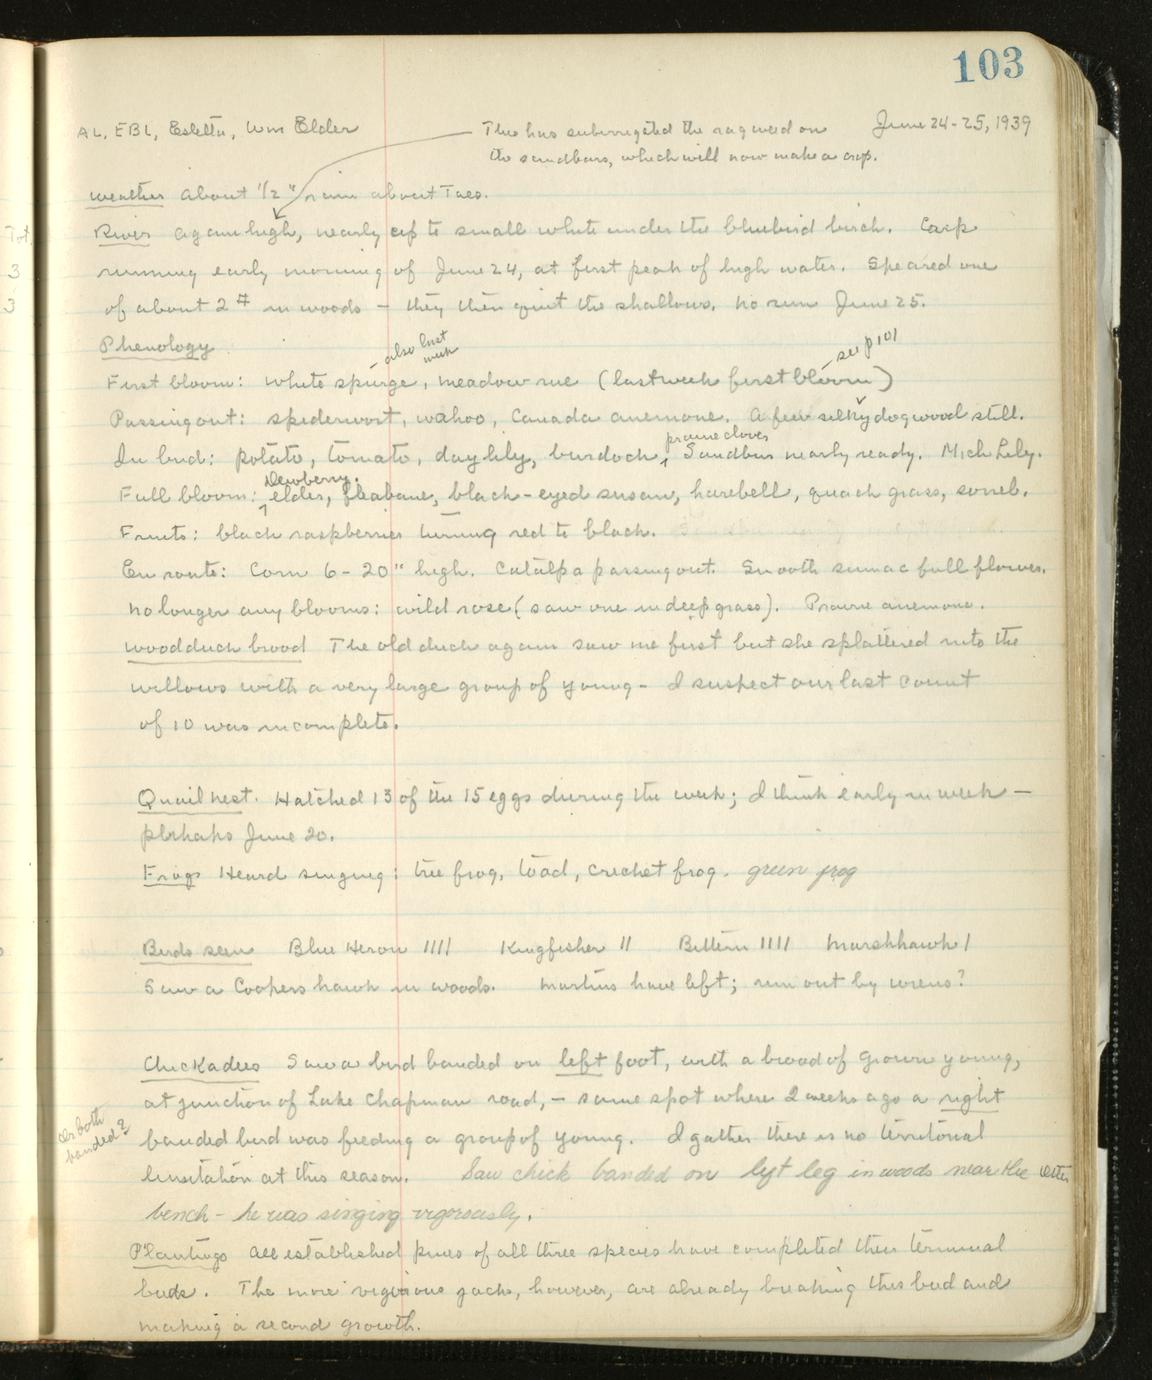 103
AL, EBL, Estella, Wm Elder
June 24-25, 1939
This has subirrigated the ragweed on
the sandbars, which will now make a crop.
Weather about 1/2" rain about Tues.
River again high, nearly up to small white under the bluebird birch. Carp
running early morning of June 24, at first peak of high water. Speared one
of about 2# in woods — they then quit the shallows. No run June 25.
Phenology
also last
week
see p 101
First bloom: white spurge, meadow rue (last week first bloom)
Passing out: spiderwort, wahoo, Canada anemone. A few silky dogwood still.
prairie clover
In bud: potato, tomato, day lily, burdock, Sandbur nearly ready. Mich Lily.
Dewberry.
Full bloom: elder, fleabane, black-eyed susan, harebell, quack grass, sorrel.
Fruits: black raspberries turning red to black.
En route: Corn 6-20" high. Catalpa passing out. Smooth sumac full flower.
No longer any blooms: wild rose (saw one in deep grass). Prairie anemone.
Wood duck brood The old duck again saw me first but she splattered into the
willows with a very large group of young - I suspect our last count
of 10 was incomplete.
Quail nest. Hatched 13 of the 15 eggs during the week; I think early in week —
perhaps June 20.
Frogs Heard singing: tree frog, toad, cricket frog. green frog
Birds seen Blue Heron IIII Kingfisher II Bittern IIII Marshhawk I
Saw a Coopers hawk in woods. Martins have left; run out by wrens?
Chickadees Saw a bird banded on left foot, with a brood of grown young,
at junction of Lake Chapman road, — same spot where 2 weeks ago a right
banded bird was feeding a group of young. I gather there is no territorial
both
banded?
limitation at this season. Saw chick banded on left leg in woods near the otter
bench - he was singing vigorously.
Plantings All established pines of all three species have completed their terminal
buds. The more vigorous jacks, however, are already breaking this bud and
making a second growth.
Tot.
3
3